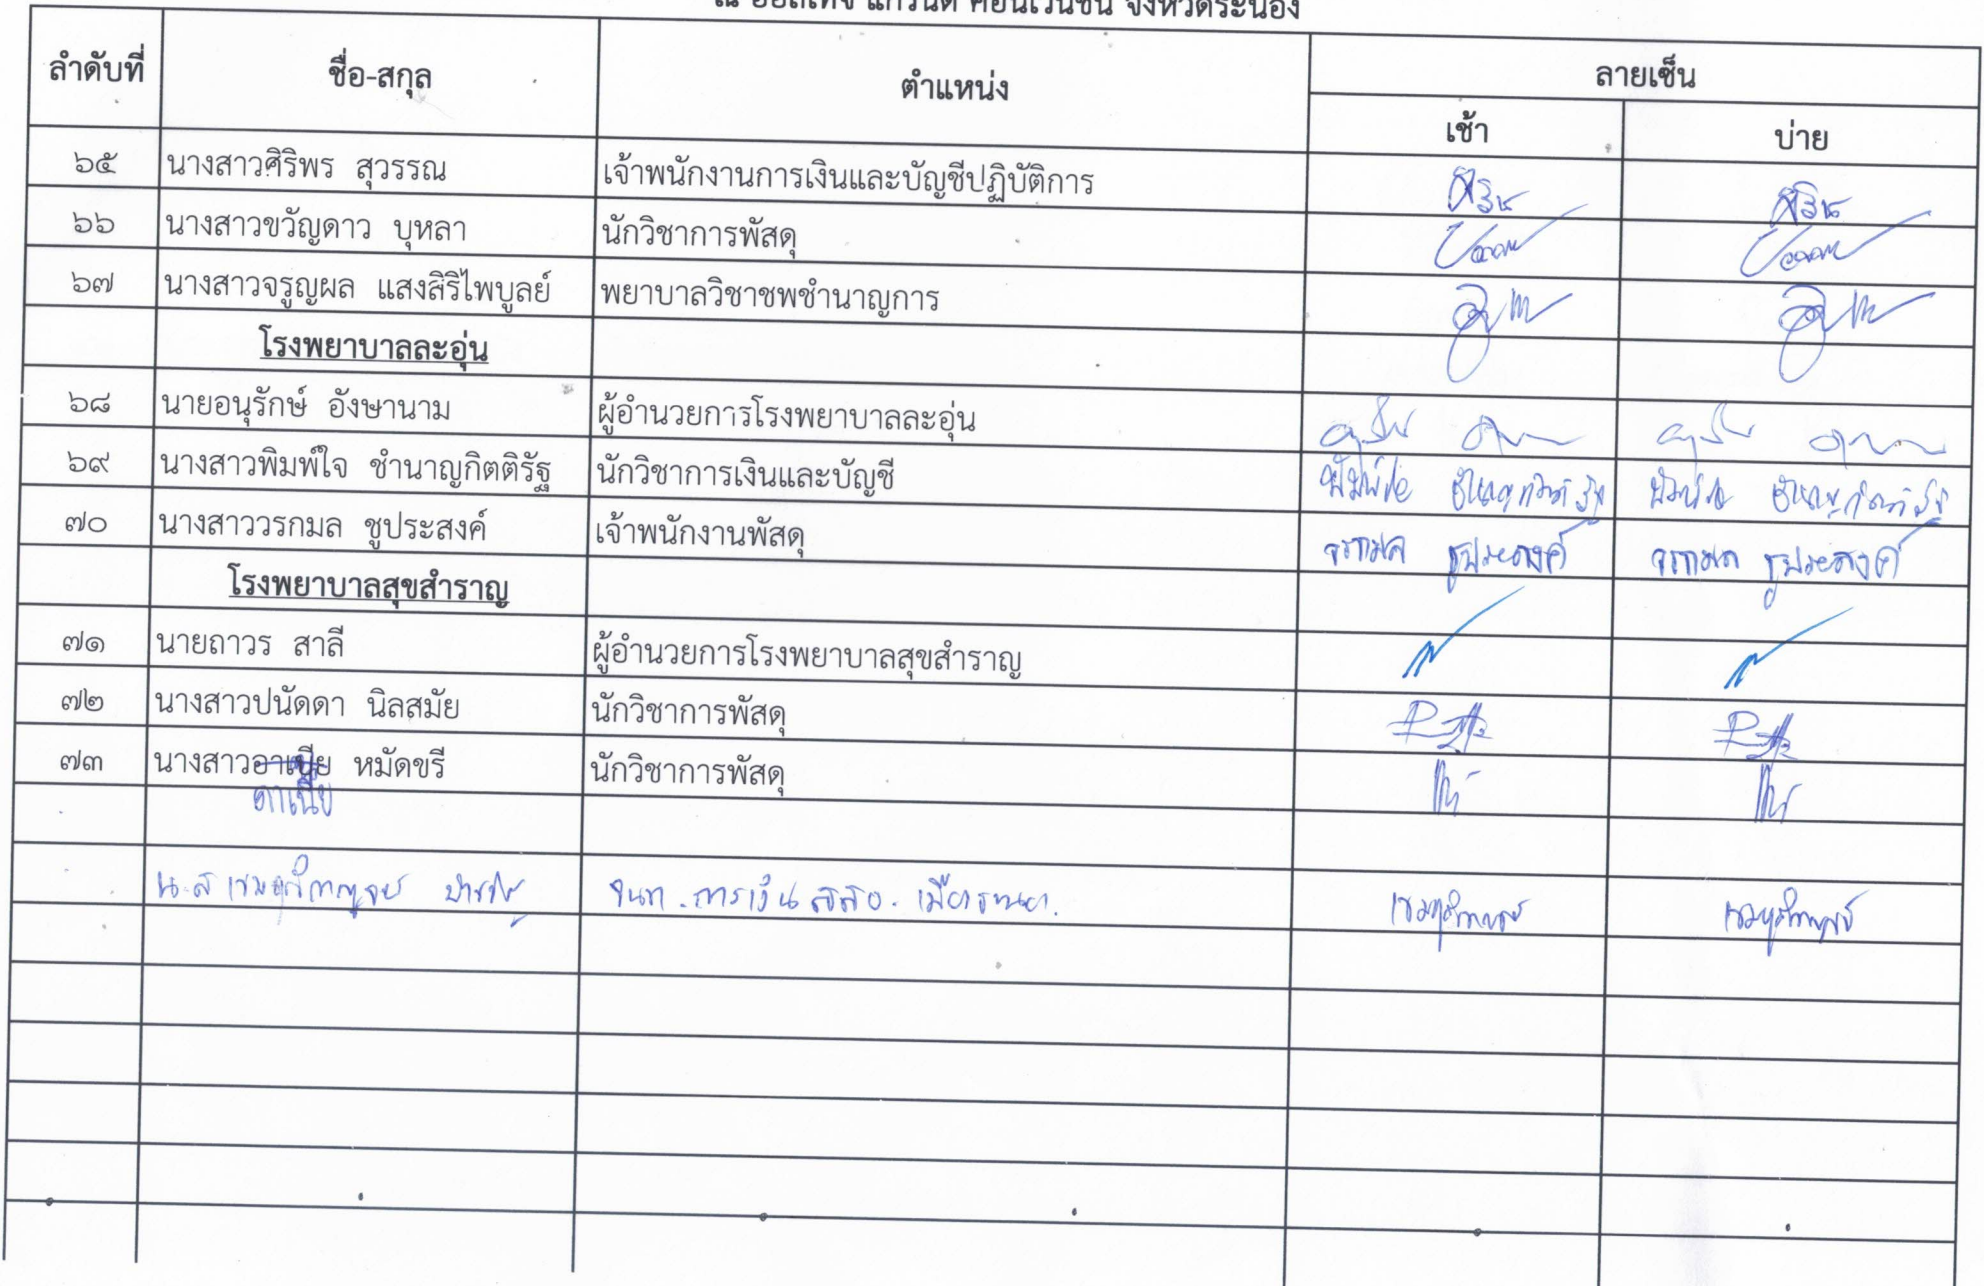 จังหวัดระนอง
ลำดับที่ ชื่อ-สกุล ตำแหน่ง ลายเซ็น
เช้า บ่าย
๖๕ นางสาวศิริพร สุวรรณ เจ้าพนักงานการเงินและบัญชีปฏิบัติการ
๖๖ นางสาวขวัญดาว บุหลา นักวิชาการพัสดุ
๖๗ นางสาวจรูญผล แสงสิริไพบูลย์ พยาบาลวิชาชพชำนาญการ
โรงพยาบาลละอุ่น
๖๘ นายอนุรักษ์ อังษานาม ผู้อำนวยการโรงพยาบาลละอุ่น
๖๙ นางสาวพิมพ์ใจ ชำนาญกิตติรัฐ นักวิชาการเงินและบัญชี พิมพ์ใจ ชำนาญกิตติรัฐ พิมพ์ใจ ชำนาญกิตติรัฐ
๗๐ นางสาววรกมล ชูประสงค์ เจ้าพนักงานพัสดุ วรกมล ชูประสงค์ วรกมล ชูประสงค์
โรงพยาบาลสุขสำราญ
๗๑ นายถาวร สาลี ผู้อำนวยการโรงพยาบาลสุขสำราญ
๗๒ นางสาวปนัดดา นิลสมัย นักวิชาการพัสดุ
๗๓ นางสาวอาเชีย หมัดขรี นักวิชาการพัสดุ
ดาเนีย
น.ส จนท. การเงิน สสอ. เมืองระนอง.